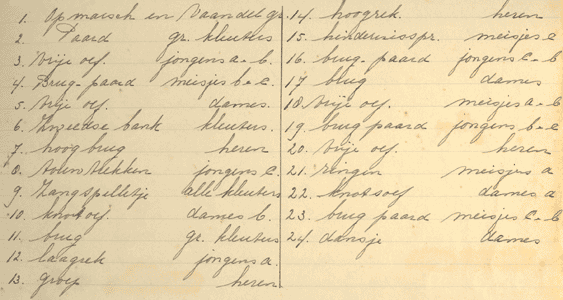 1. Opmarsch en Vaandelgr.
2. Paard gr. kleuters
3. Vrije oef. jongens a-b.
4. Brug-paard meisjes b-c.
5. Vrije oef. dames.
6. Zweedse bank kleuters.
7. hoog brug heren
8. jongens c.
9. Zangspelletje alle kleuters
10. knotsoef. dames b.
11. brug gr. kleuters
12. laagrek jongens a.
13. groep heren
14. hoogrek heren
15. hindernisspr. meisjes c
16. brug-paard jongens c-b
17 brug dames
18 Vrije oef. meisjes a-b
19. brug paard jongens b-c
20. Vrije oef. heren
21. ringen meisjes a
22. knotsoef dames a
23. brug paard meisjes c-b
24. dansje dames